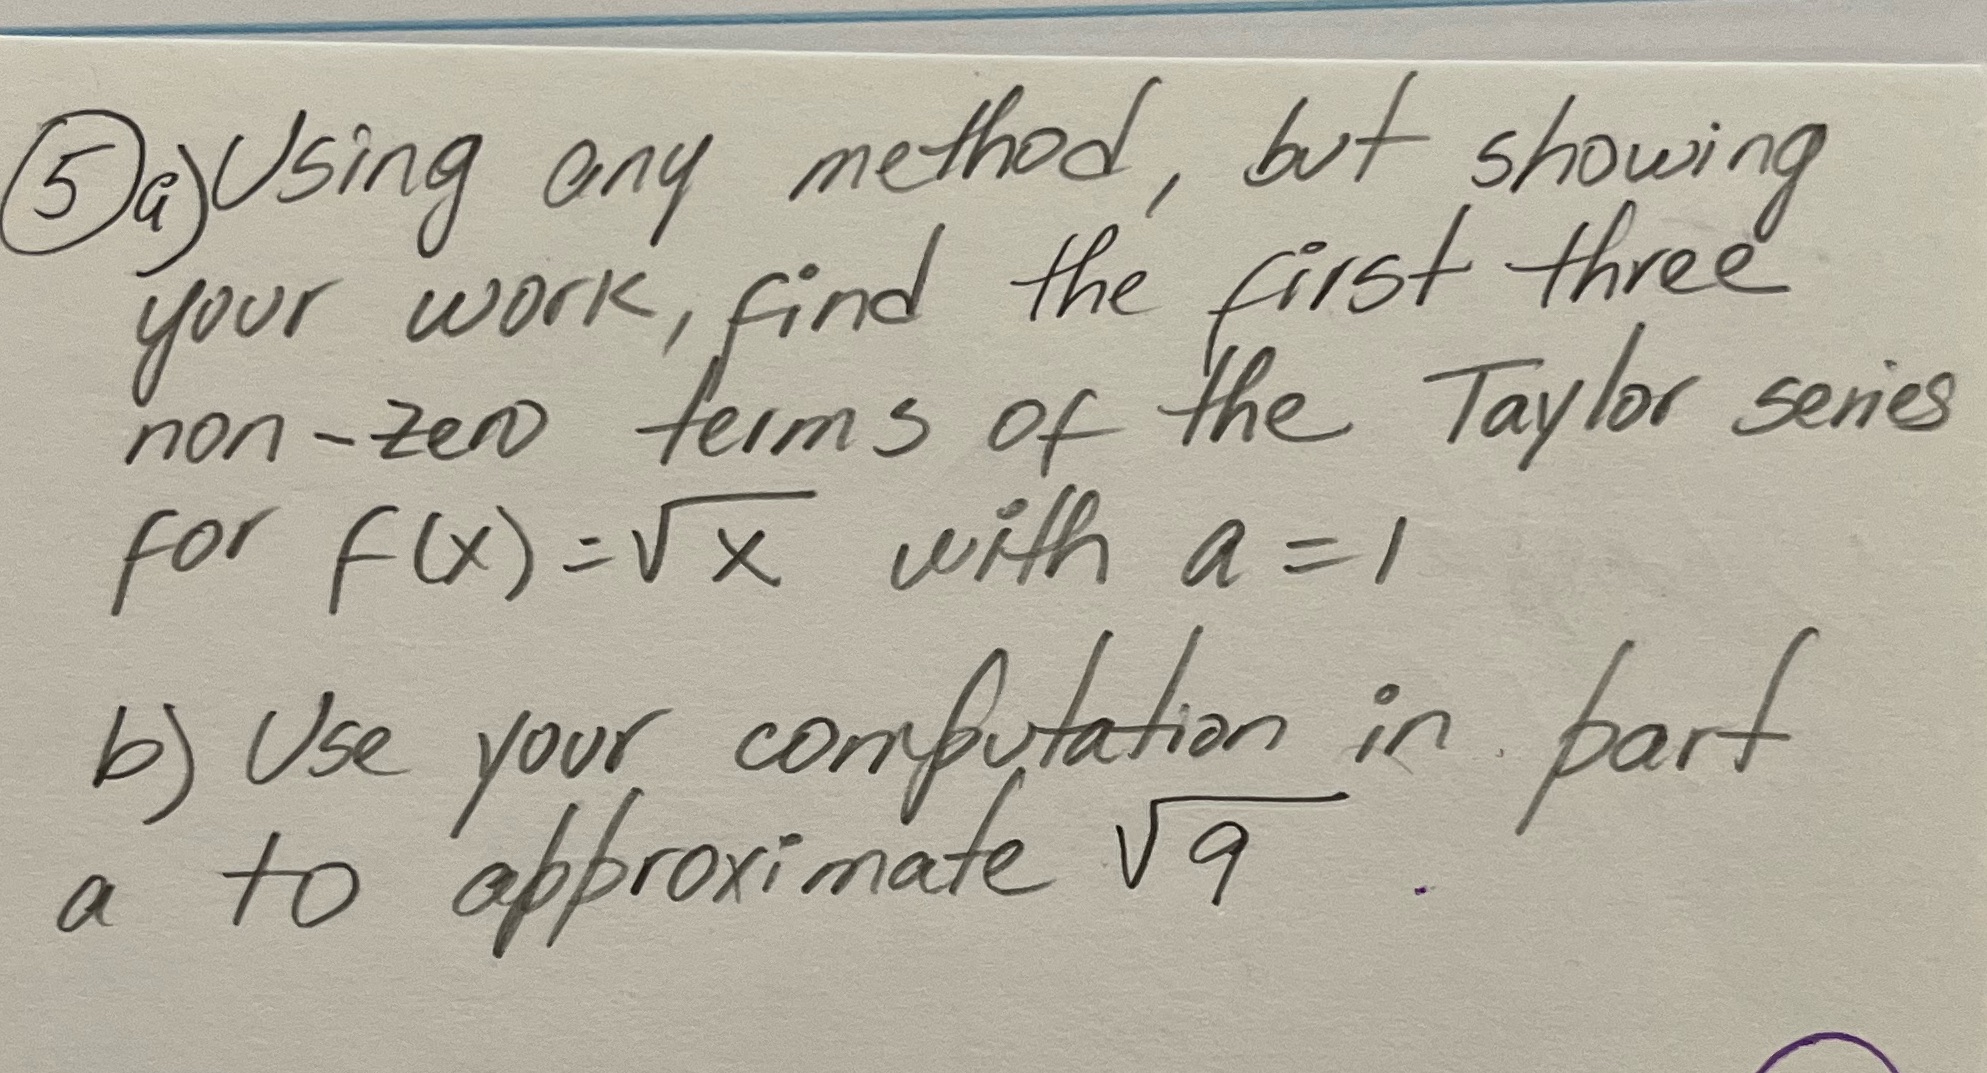 5 a) Using any method, but showing
your work, find the first three
non-zero terms of the Taylor series
for f(x) = √x with a = 1
b) Use your computation in part
a to approximate √9